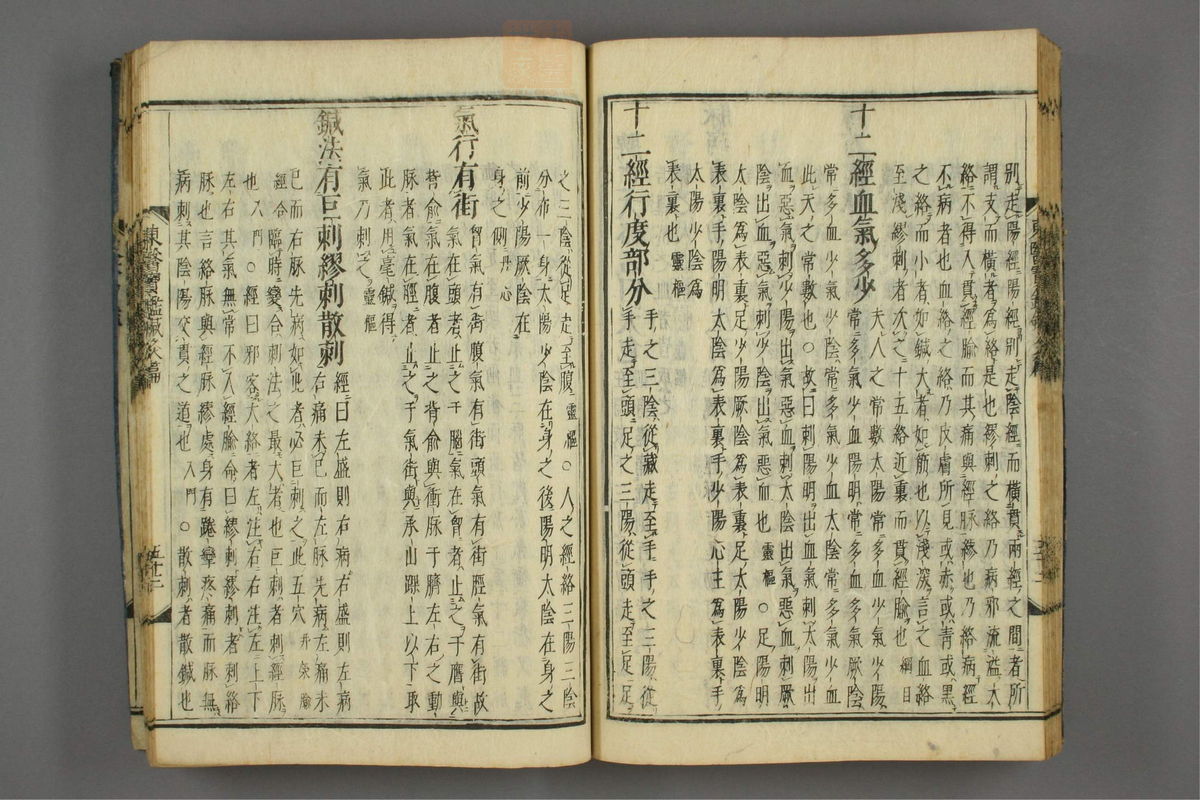 別走陽經陽經別走陰經而橫貫兩經之間者所
謂支而橫者爲絡是也繆刺之絡乃病邪流溢大
絡不得入貫經腧而其痛與經脉繆也乃絡病經
不病者也血絡之絡乃皮膚所見或赤或靑或黑
之絡而小者如鍼大者如筋也以淺深言之血絡
至淺繆刺者次之十五絡近裏而貫經腧也 綱目
十二經血氣多少 夫人之常數太陽常多血少氣少陽
常多氣少血陽明常多血多氣厥陰
常多血少氣少陰常多氣少血太陰常多氣少血
此天之常數也○故曰刺陽明出血氣刺太陽出
血惡氣刺少陽出氣惡血刺太陰出氣惡血刺厥
陰出血惡氣刺少陰出氣惡血也 靈樞 ○足陽明
太陰爲表裏足少陽厥陰爲表裏足太陽少陰爲
表裏手陽明太陰爲表裏手少陽心主爲表裏手
太陽少陰爲
表裏也 靈樞
十二經行度部分 手之三陰從藏走至手手之三陽從
手走至頭足之三陽從頭走至足足
之三陰從足走至腹 靈樞 ○人之經絡三陽三陰
分布一身太陽少陰在身之後陽明太陰在身之
前少陽厥陰在
身之側 丹心
氣行有街 胷氣有街腹氣有街頭氣有街脛氣有街故
氣在頭者止之于腦氣在胷者止之于膺與
背兪氣在腹者止之背兪與衝脉于臍左右之動
脉者氣在脛者止之于氣街與承山踝上以下取
此者用毫鍼得
氣乃刺之 靈樞
鍼法有巨刺繆刺散刺 經曰左盛則右病右盛則左病
右痛未已而左脉先病左痛未
已而右脉先病如此者必巨刺之此五穴
經合臨時變合刺法之最大者也巨刺者刺經脉
也 入門 ○經曰邪客大絡者左注右右注左上下
左右其氣無常不入經腧命曰繆刺繆刺者刺絡
脉也言絡脉與經脉繆處身有踡攣疼痛而脉無
病刺其陰陽交貫之道也 入門 ○散刺者散鍼也
東醫寶鑑鍼灸篇
五十二